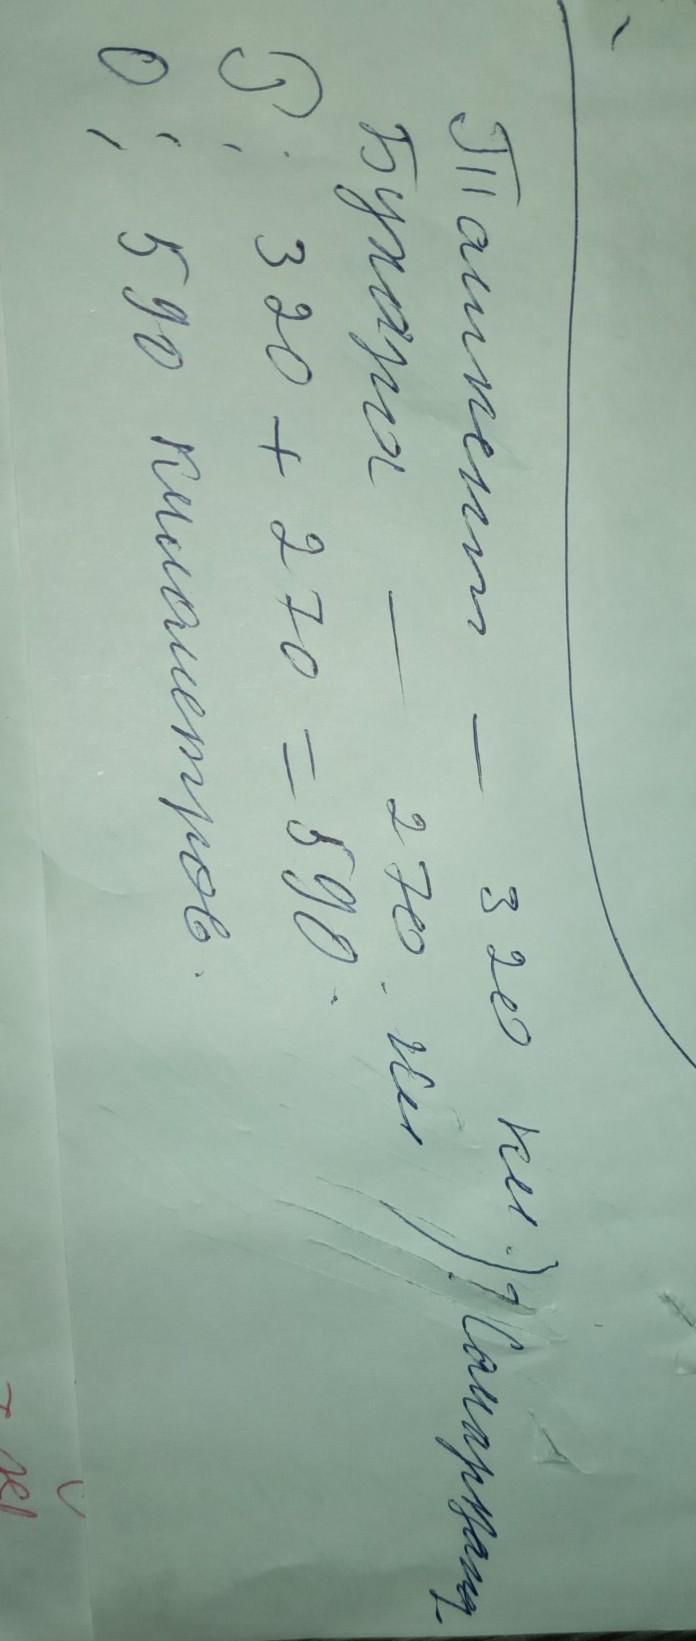 Ташкент — 320 км. } ? Самарканд
Бухара — 270. км
Р: 320 + 270 = 590.
О: 590 километров.